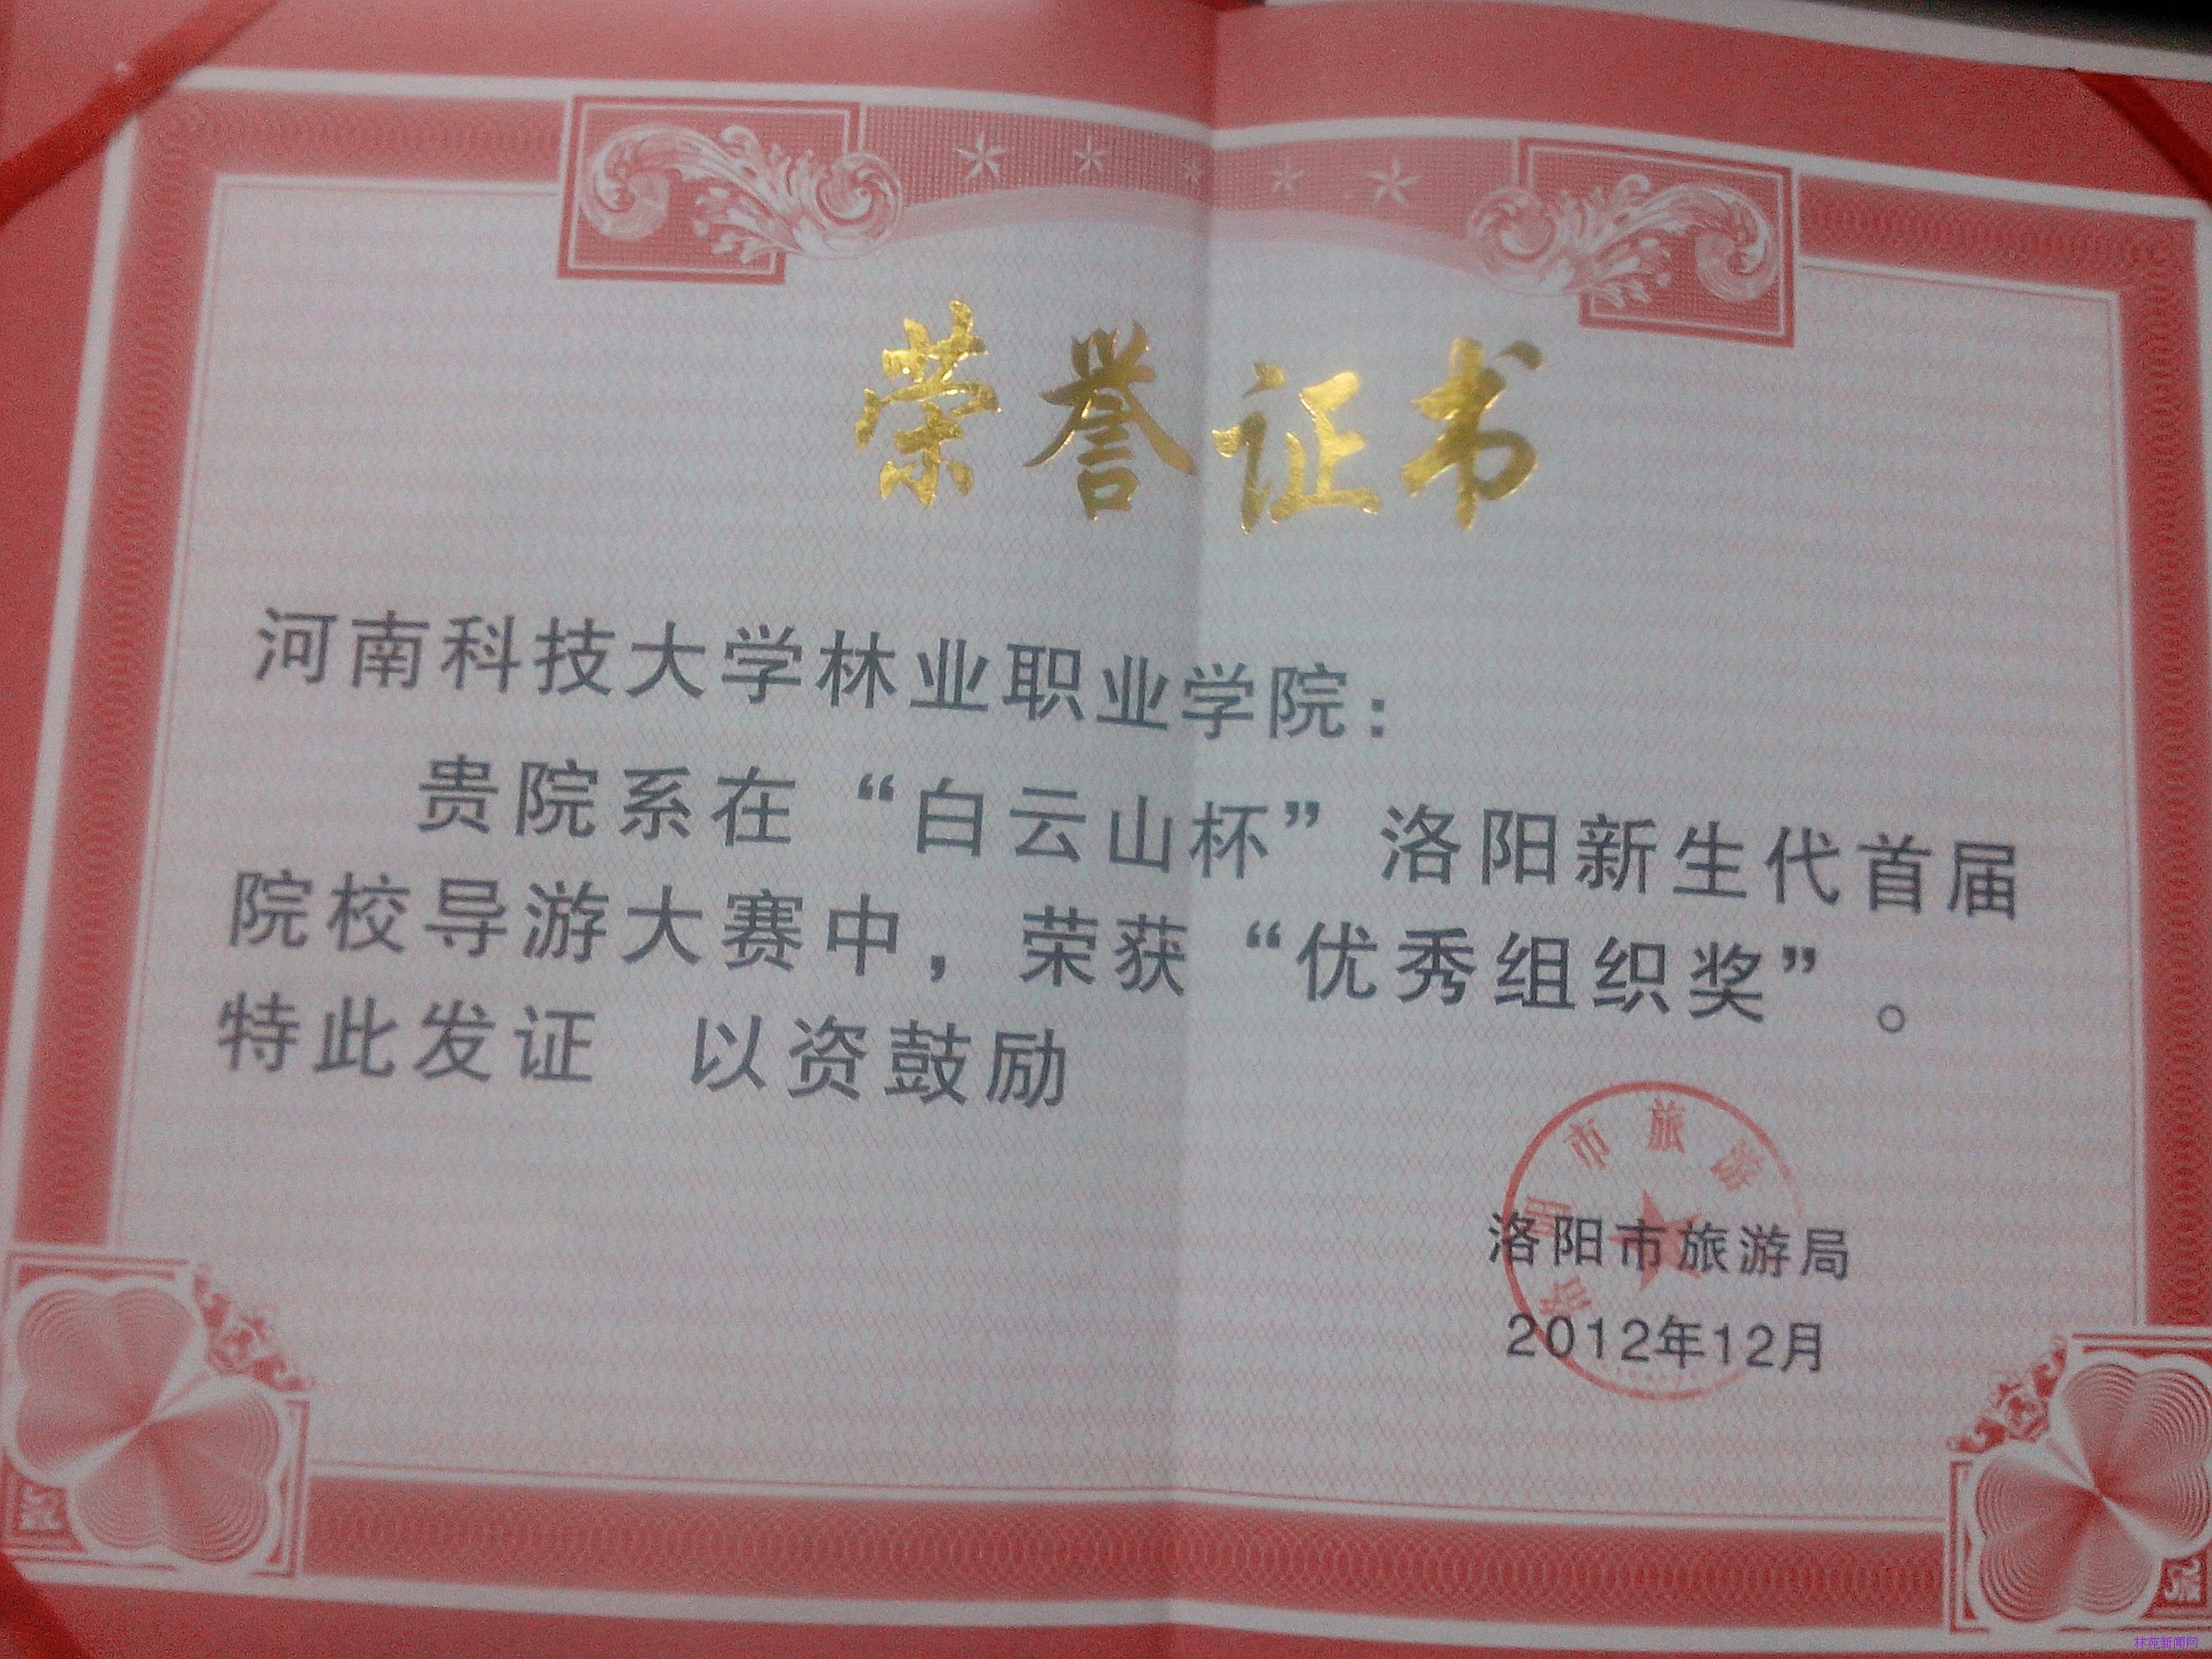 荣誉证书
河南科技大学林业职业学院：
贵院系在“白云山杯”洛阳新生代首届
院校导游大赛中，荣获“优秀组织奖”。
特此发证 以资鼓励
洛阳市旅游
洛阳市旅游局
2012年12月
林苑新闻网